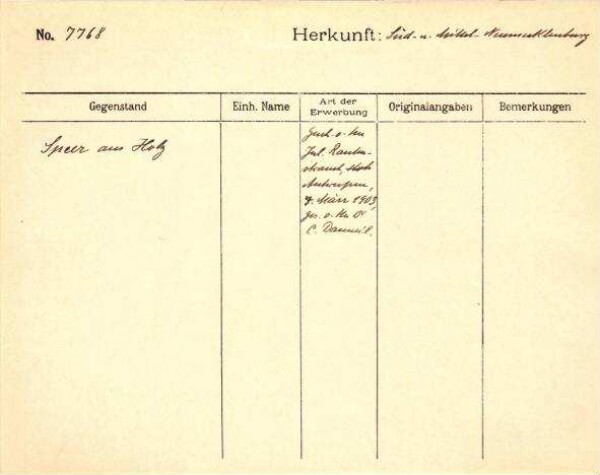 No. 7768 Herkunft: Süd- u. Mittel-Neumecklenburg
Gegenstand Einh. Name Art der Erwerbung Originalangaben Bemerkungen
Speer aus Holz
Gesch. v. Hn
Jul. Rauten-
strauch,
Antwerpen,
7. März 1903,
ges. v. Hn Dr
C. Danneil.